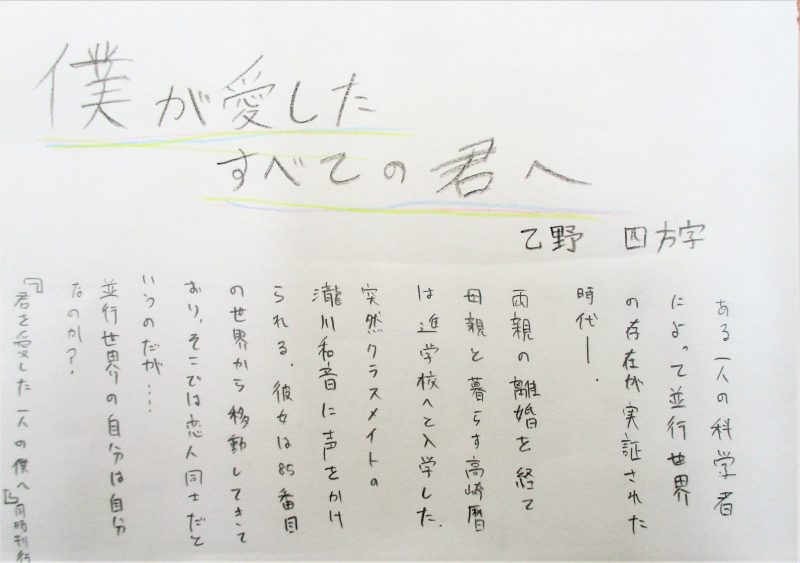 僕が愛した
すべての君へ
乙野 四方字
ある一人の科学者
によって並行世界
の存在が実証された
時代ー.
両親の離婚を経て
母親と暮らす高崎暦
は進学校へて入学した.
突然クラスメイトの
瀧川和音に声をかけ
られる.彼女は85番目
の世界から移動してきて
おり,そこでは恋人同士だと
いうのだが…
並行世界の自分は自分
なのか？
『君を愛した一人の僕へ』同時刊行